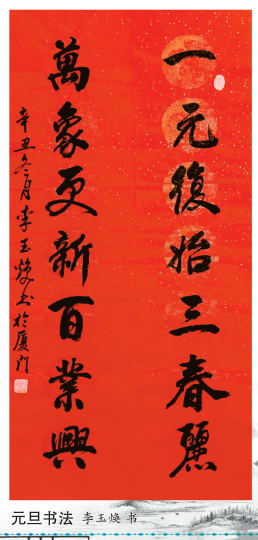 一元復始三春麗
萬象更新百業興
辛丑冬月李玉焕书於厦门
元旦书法 李玉焕 书